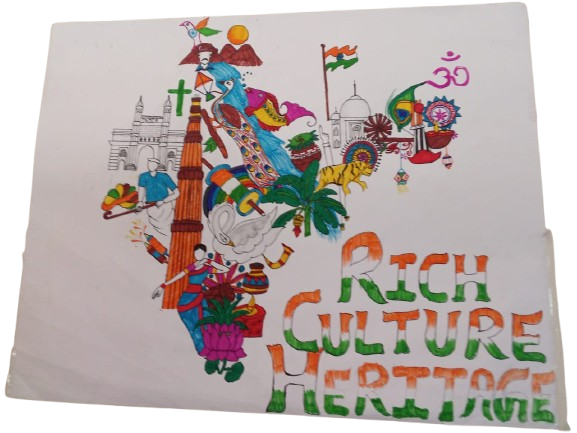 ॐ
RICH
CULTURE
HERITAGE